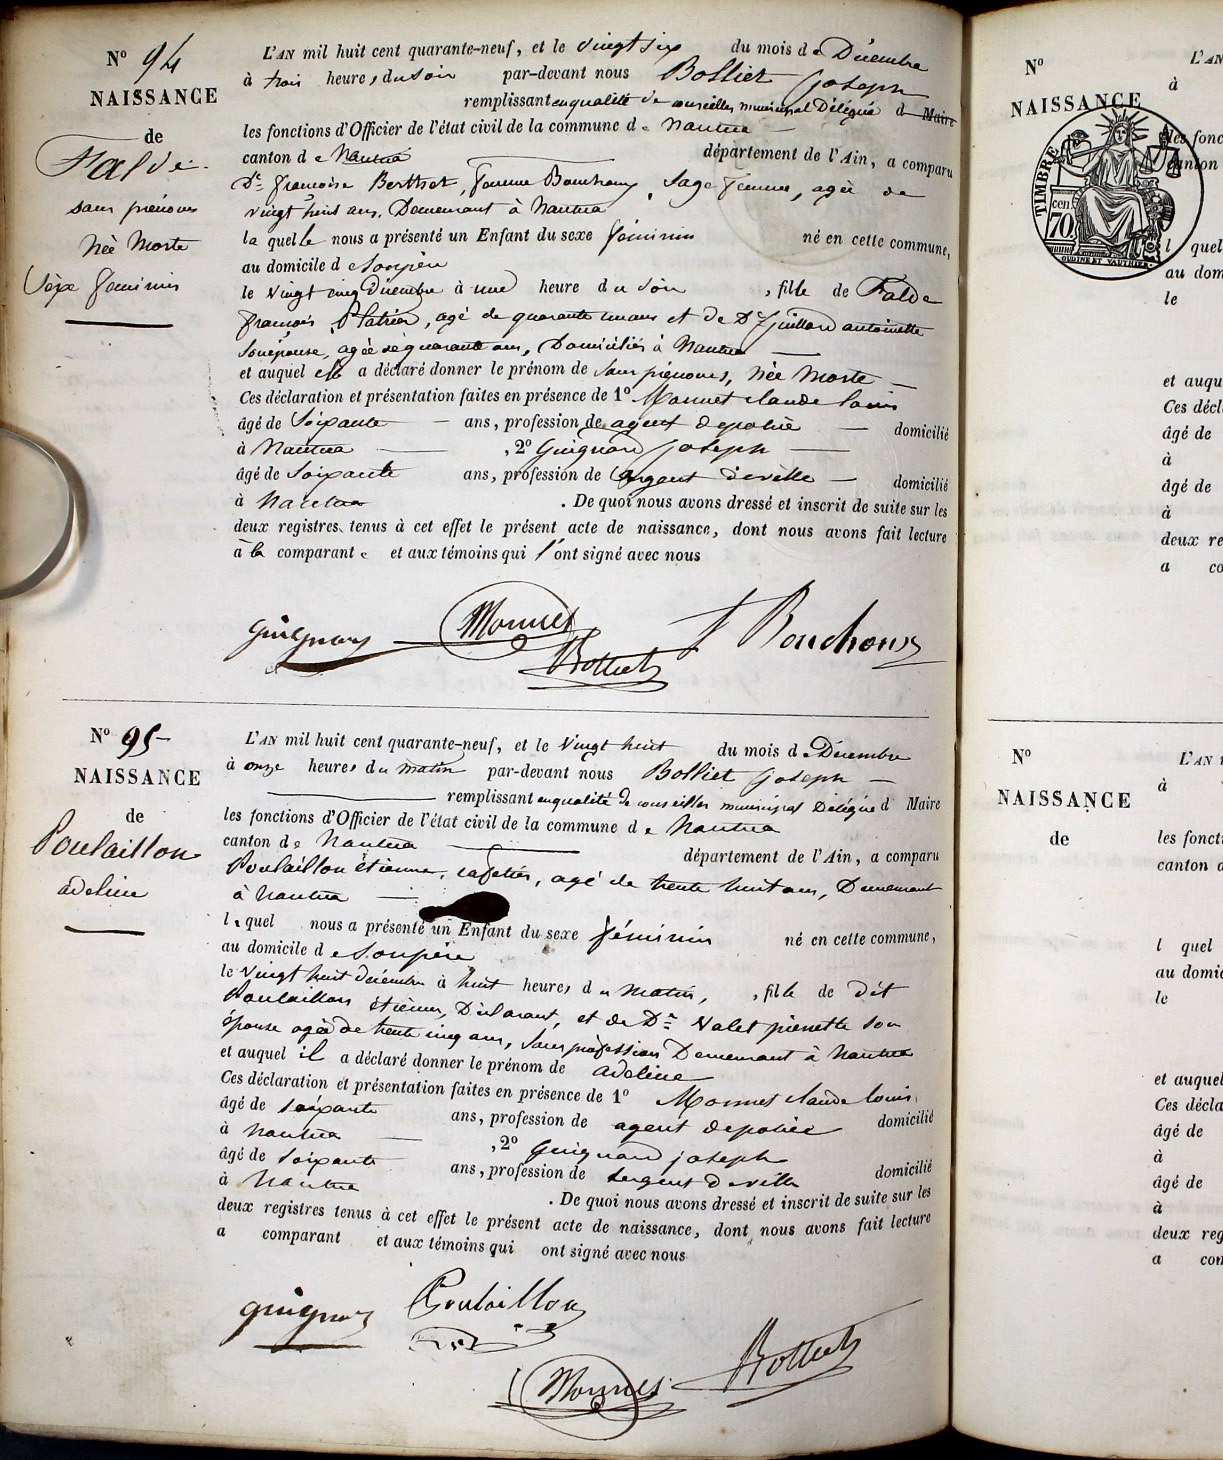 N° 94
NAISSANCE
de
Falde
sans prénoms
Née Morte
Sèxe féminin
L'AN mil huit cent quarante-neuf, et le vingt six du mois de Décembre
à trois heures du soir par-devant nous Bolliet joseph
remplissant en qualité de conseiller municipal Délégué d Maire
les fonctions d'Officier de l'état civil de la commune de Nantua
canton de Nantua département de l'Ain, a comparu
De françoise Berthet, femme Bouchoux, Sage femme, agée de
vingt huit ans, Demeurant à Nantua
la quelle nous a présenté un Enfant du sexe féminin né en cette commune,
au domicile de son père
le vingt cinq Décembre à une heure du soir, fille de Falde
françois, agé de quarante un ans et de De Guillard antoinette
Son épouse, agée de quarante ans, Domiciliés à Nantua
et auquel elle a déclaré donner le prénom de sans prénoms, Née Morte
Ces déclaration et présentation faites en présence de 1° Monnet claude louis
âgé de Soixante ans, profession de agent de police domicilié
à Nantua, 2° Guignard joseph
âgé de Soixante ans, profession de sergent de ville domicilié
à Nantua. De quoi nous avons dressé et inscrit de suite sur les
deux registres tenus à cet effet le présent acte de naissance, dont nous avons fait lecture
à la comparante et aux témoins qui l'ont signé avec nous
guignard Monnet Bolliet f Bouchoux
N° 95
NAISSANCE
de
Poulaillon
adeline
L'AN mil huit cent quarante-neuf, et le vingt huit du mois de Décembre
à onze heures du matin par-devant nous Bolliet joseph
remplissant en qualité de conseiller municipal Délégué d Maire
les fonctions d'Officier de l'état civil de la commune de Nantua
canton de Nantua département de l'Ain, a comparu
Poulaillon étienne, cafetier, agé de trente huit ans, Demeurant
à Nantua
lequel nous a présenté un Enfant du sexe féminin né en cette commune,
au domicile de son père
le vingt huit décembre à huit heures du matin, fille de dit
Poulaillon étienne, Déclarant, et de De Valet pierrette son
épouse agée de trente cinq ans, sans profession Demeurant à Nantua
et auquel il a déclaré donner le prénom de adeline
Ces déclaration et présentation faites en présence de 1° Monnet claude louis
âgé de soixante ans, profession de agent de police domicilié
à Nantua, 2° Guignard joseph
âgé de soixante ans, profession de sergent de ville domicilié
à Nantua. De quoi nous avons dressé et inscrit de suite sur les
deux registres tenus à cet effet le présent acte de naissance, dont nous avons fait lecture
a comparant et aux témoins qui ont signé avec nous
guignard Poulaillon
Monnet Bolliet
N°
NAISSANCE
de
L'AN
à
les fonc
canton
TIMBRE
70
cen
l quel
au dom
le
et auqu
Ces décl
âgé de
à
âgé de
à
deux re
a co
N°
NAISSANCE
de
L'AN
à
les foncti
canton d
l quel
au domic
le
et auquel
Ces décla
âgé de
à
âgé de
à
deux reg
a com